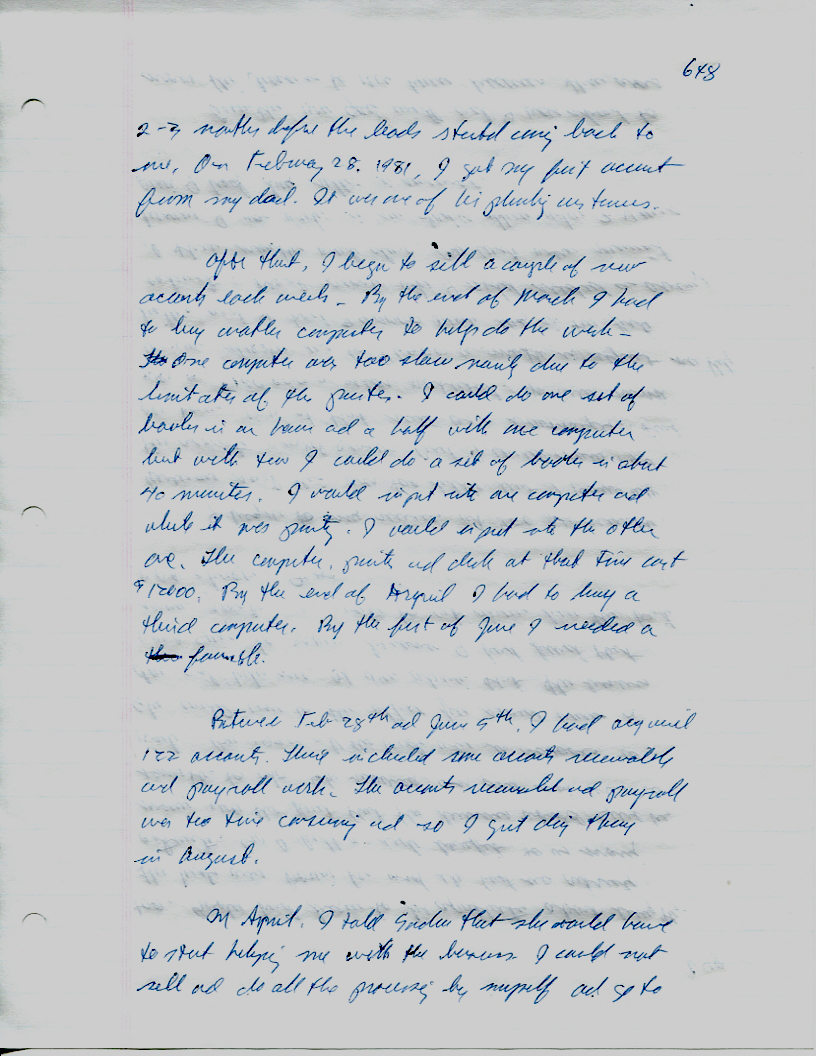 648
2-3 months before the leads started coming back to
me. On February 28, 1981, I got my first account
from my dad. It was one of his plumbing customers.
After that, I began to sell a couple of new
accounts each week - By the end of March I had
to buy another computer to help do the work -
One computer was too slow mainly due to the
limitations of the printer. I could do one set of
books in an hour and a half with one computer
but with two I could do a set of books in about
40 minutes. I would input into one computer and
while it was printing, I would input into the other
one. The computer, printer and desk at that time cost
$12000. By the end of April I had to buy a
third computer. By the first of June I needed a
fourth.
Between Feb 28th and June 5th, I had acquired
122 accounts. These included some accounts receivable
and payroll work. The accounts receivable and payroll
was too time consuming and so I quit doing them
in August.
In April, I told that she would have
to start helping me with the business I could not
sell and do all the processing by myself and go to